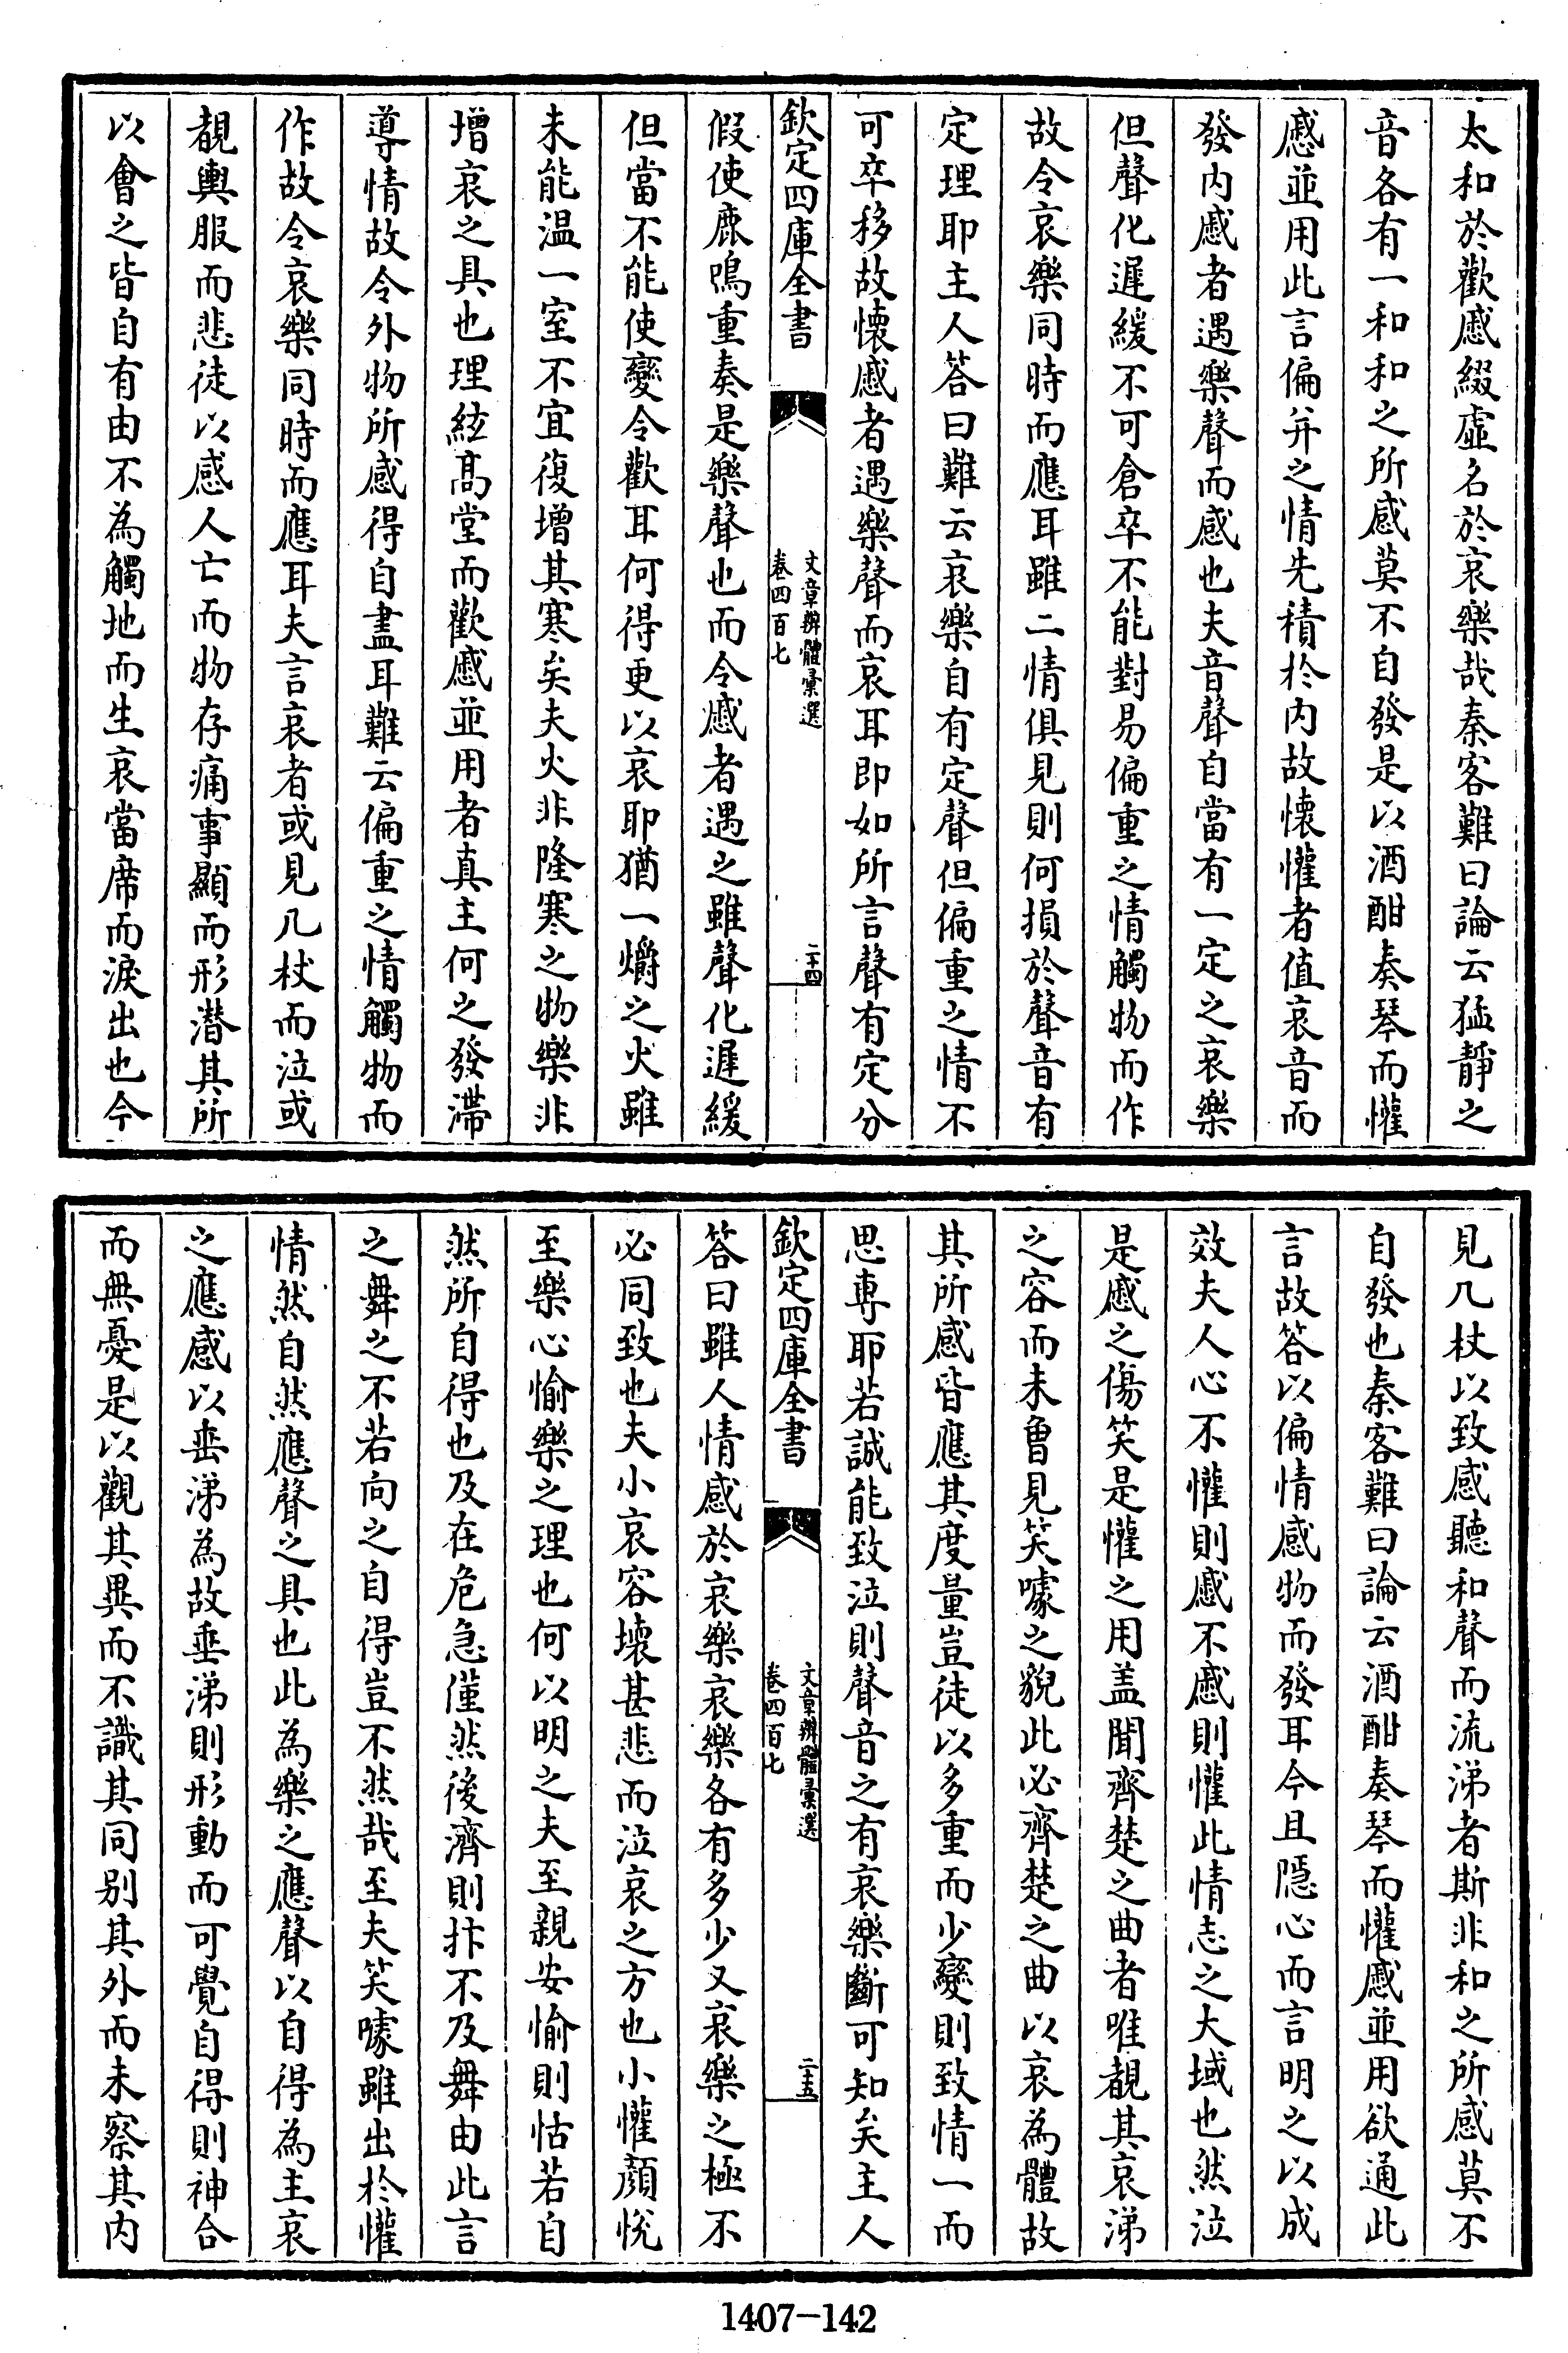 太和於歡慼綴虛名於哀樂哉秦客難曰論云猛靜之
音各有一和和之所感莫不自發是以酒酣奏琴而懽
慼並用此言偏并之情先積於内故懐懽者值哀音而
發内慼者遇樂聲而感也夫音聲自當有一定之哀樂
但聲化遲緩不可倉卒不能對易偏重之情觸物而作
故令哀樂同時而應耳雖二情俱見則何損於聲音有
定理耶主人答曰難云哀樂自有定聲但偏重之情不
可卒移故懐慼者遇樂聲而哀耳即如所言聲有定分
欽定四庫全書
文章辨體彚選
卷四百七
二十四
假使鹿鳴重奏是樂聲也而令慼者遇之雖聲化遲緩
但當不能使變令歡耳何得更以哀耶猶一爝之火雖
未能温一室不宜復增其寒矣夫火非隆寒之物樂非
増哀之具也理絃髙堂而歡慼並用者真主何之發滯
導情故令外物所感得自盡耳難云偏重之情觸物而
作故令哀樂同時而應耳夫言哀者或見几杖而泣或
覩輿服而悲徒以感人亡而物存痛事顯而形潜其所
以會之皆自有由不為觸地而生哀當席而淚出也今
見几杖以致感聽和聲而流涕者斯非和之所感莫不
自發也秦客難曰論云酒酣奏琴而懽慼並用欲通此
言故答以偏情感物而發耳今且隱心而言明之以成
效夫人心不懽則慼不慼則懽此情志之大域也然泣
是慼之傷笑是懽之用盖聞齊楚之曲者唯覩其哀涕
之容而未曽見笑噱之貌此必齊楚之曲以哀為體故
其所感皆應其度量豈徒以多重而少變則致情一而
思專耶若誠能致泣則聲音之有哀樂斷可知矣主人
欽定四庫全書
文章辨體彚選
卷四百七
二十五
答曰雖人情感於哀樂哀樂各有多少又哀樂之極不
必同致也夫小哀容壊甚悲而泣哀之方也小懽顔悅
至樂心愉樂之理也何以明之夫至親安愉則怙若自
然所自得也及在危急僅然後濟則抃不及舞由此言
之舞之不若向之自得豈不然哉至夫笑噱雖出於懽
情然自然應聲之具也此為樂之應聲以自得為主哀
之應感以垂涕為故垂涕則形動而可覺自得則神合
而無憂是以觀其異而不識其同别其外而未察其内
1407-142